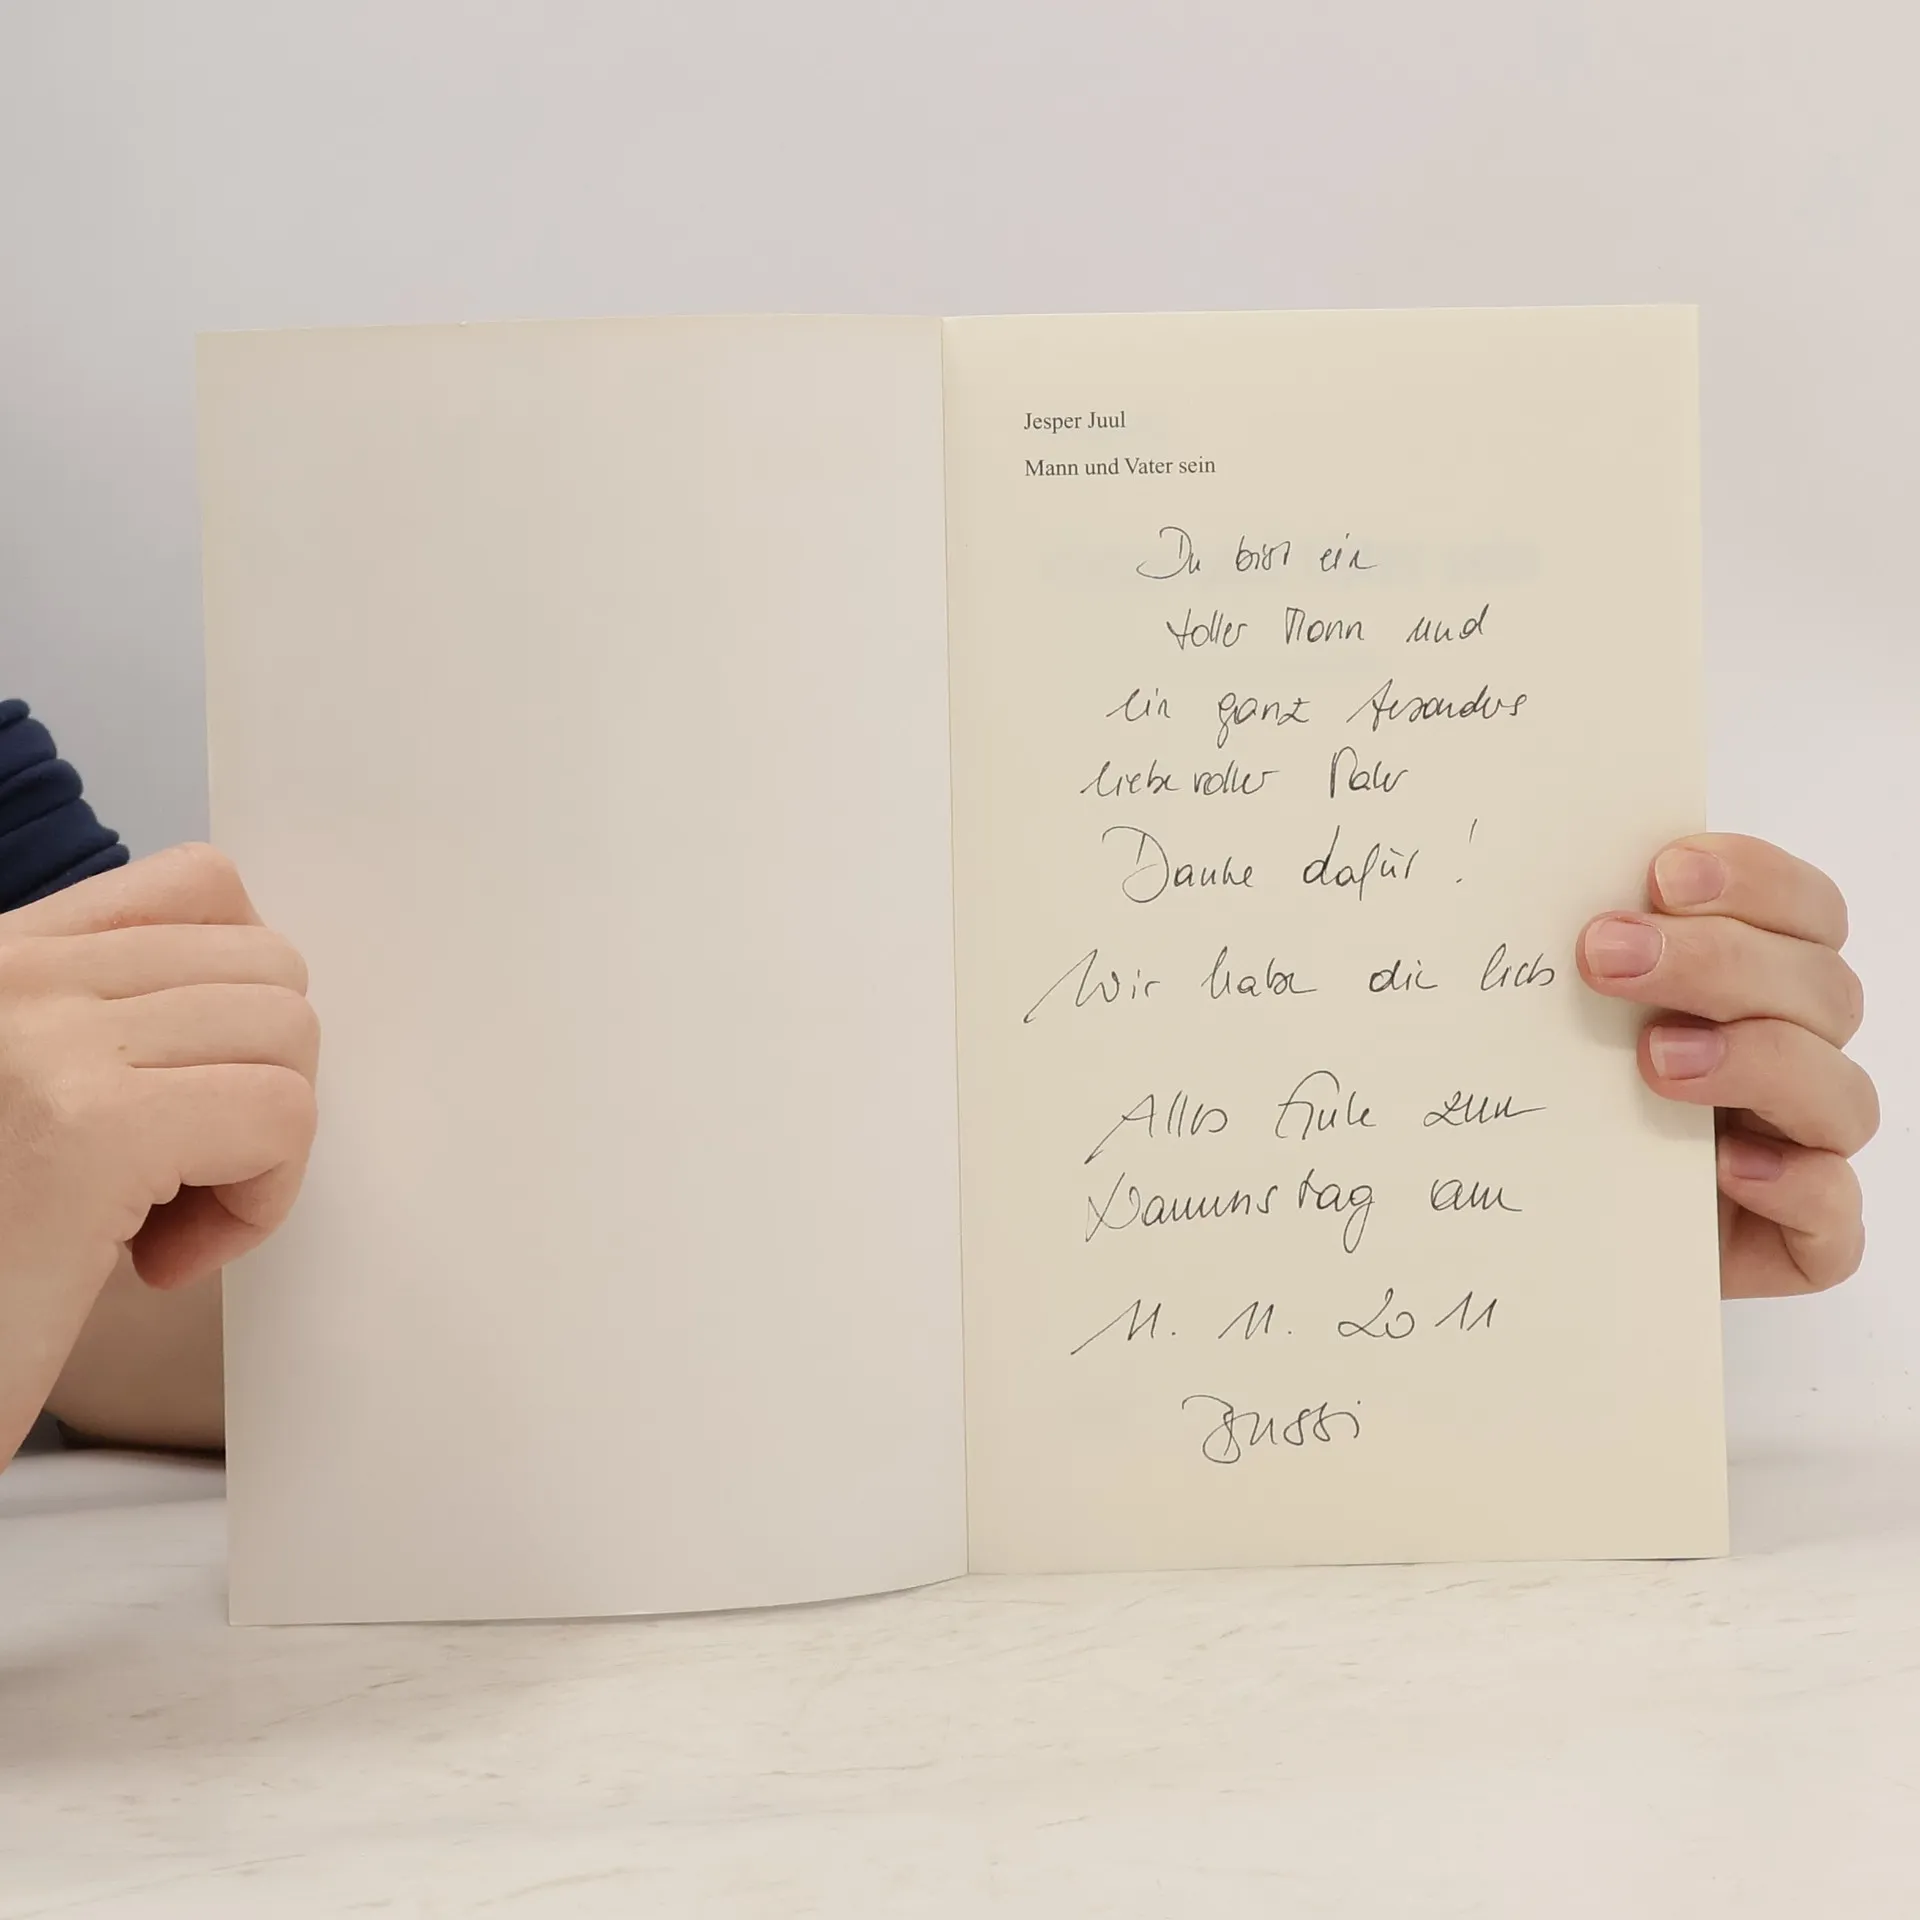 Jesper Juul
Mann und Vater sein
Du bist ein
toller Mann und
ein ganz besonders
liebevoller Vater
Danke dafür!
Wir haben dich lieb
Alles Gute zum
Namenstag am
11. 11. 2011
Bussi